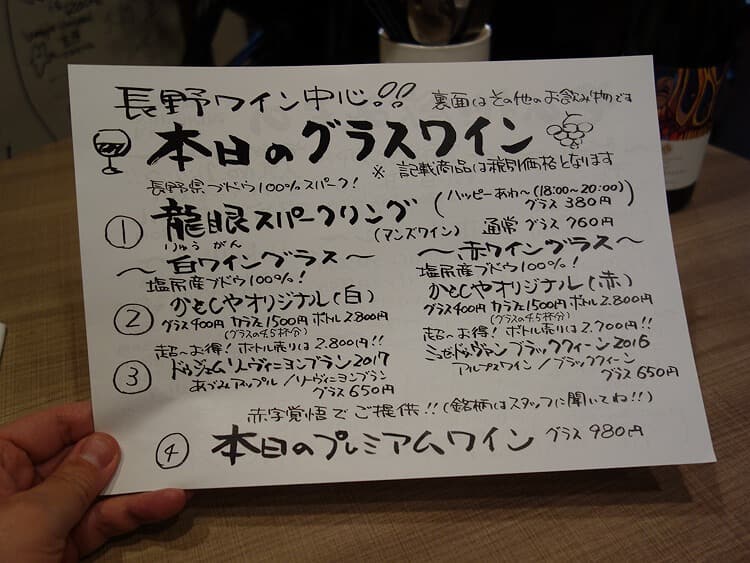 長野ワイン中心!!
裏面はその他のお飲み物です
本日のグラスワイン
※ 記載商品は税別価格となります
長野県ブドウ100%スパーク!
① 龍眼スパークリング
りゅうがん
(マンズワイン)
(ハッピーあわ〜(18:00〜20:00)
グラス 380円)
通常 グラス 760円
〜白ワイングラス〜
塩尻産ブドウ100%!
② かとしやオリジナル(白)
グラス400円 カラフェ1500円 ボトル2.800円
(グラスの4.5杯分)
超〜お得! ボトル売りは2.800円!!
③ ドゥジェム リーヴィニヨンブラン2017
あづみアップル/ソーヴィニヨンブラン
グラス650円
〜赤ワイングラス〜
塩尻産ブドウ100%!
かとしやオリジナル(赤)
グラス400円 カラフェ1500円 ボトル2.800円
(グラスの4.5杯分)
超〜お得! ボトル売りは2.700円!!
ミュゼドゥヴァン ブラッククィーン2016
アルプスワイン/ブラッククィーン
グラス650円
赤字覚悟でご提供!!(銘柄はスタッフに聞いてね!!)
④ 本日のプレミアムワイン グラス 980円